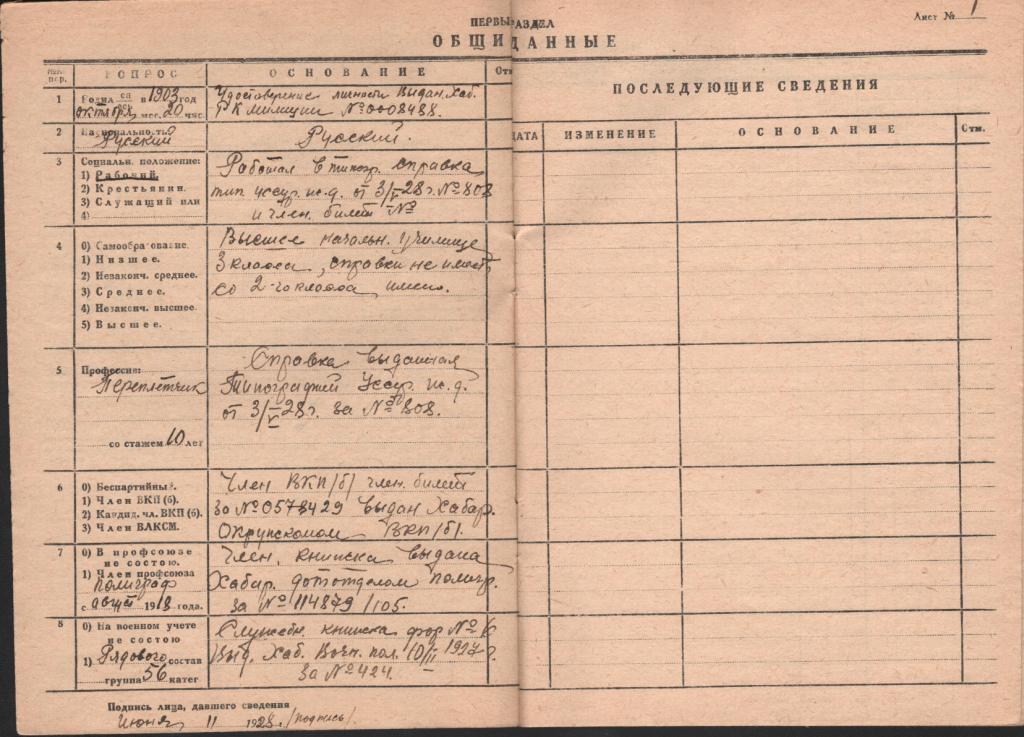 ПЕРВЫЙ РАЗДЕЛ
Лист № 1
ОБЩИЕ ДАННЫЕ
ВОПРОС
ОСНОВАНИЕ
ПОСЛЕДУЮЩИЕ СВЕДЕНИЯ
ДАТА
ИЗМЕНЕНИЕ
ОСНОВАНИЕ
Отм.
1
в 1903 год
октября мес. 20 чис.
Удостоверение личности Выдан. Хаб.
Р К милиции № 0008488.
2
Национальность
Русский
Русский.
3
Социальн. положение:
1) Рабочий.
2) Крестьянин.
3) Служащий или
4)
Работал в типогр. справка
тип Уссур. ж. д. от 3/V-28 г. № 808
и член. билет №
4
0) Самообразование.
1) Низшее.
2) Незаконч. среднее.
3) Среднее.
4) Незаконч. высшее.
5) Высшее.
Высшее начальн. училище
3 класса, справки не имеет
со 2-го класса имею.
5
Профессия:
Переплетчик
со стажем 10 лет
Справка выданная
Типографией Уссур. ж. д.
от 3/V 28 г. за № 808.
6
0) Беспартийный.
1) Член ВКП (б).
2) Кандид. чл. ВКП (б).
3) Член ВЛКСМ.
Член ВКП/б/ член. билет
за № 0578429 выдан Хабар.
ВКП/б/.
7
0) В профсоюзе
не состою.
1) Член профсоюза
полиграф
с август 1918 года.
Член. книжка выдана
Хабар. полигр.
за № 114879/105.
8
0) На военном учете
не состою
1) Рядового состав
группа 56 катег
Служебн. книжка
Выд. Хаб. Воен. 10/II 1927 г.
за № 424.
Подпись лица, давшего сведения
Июня 11 1928 /подпись/.